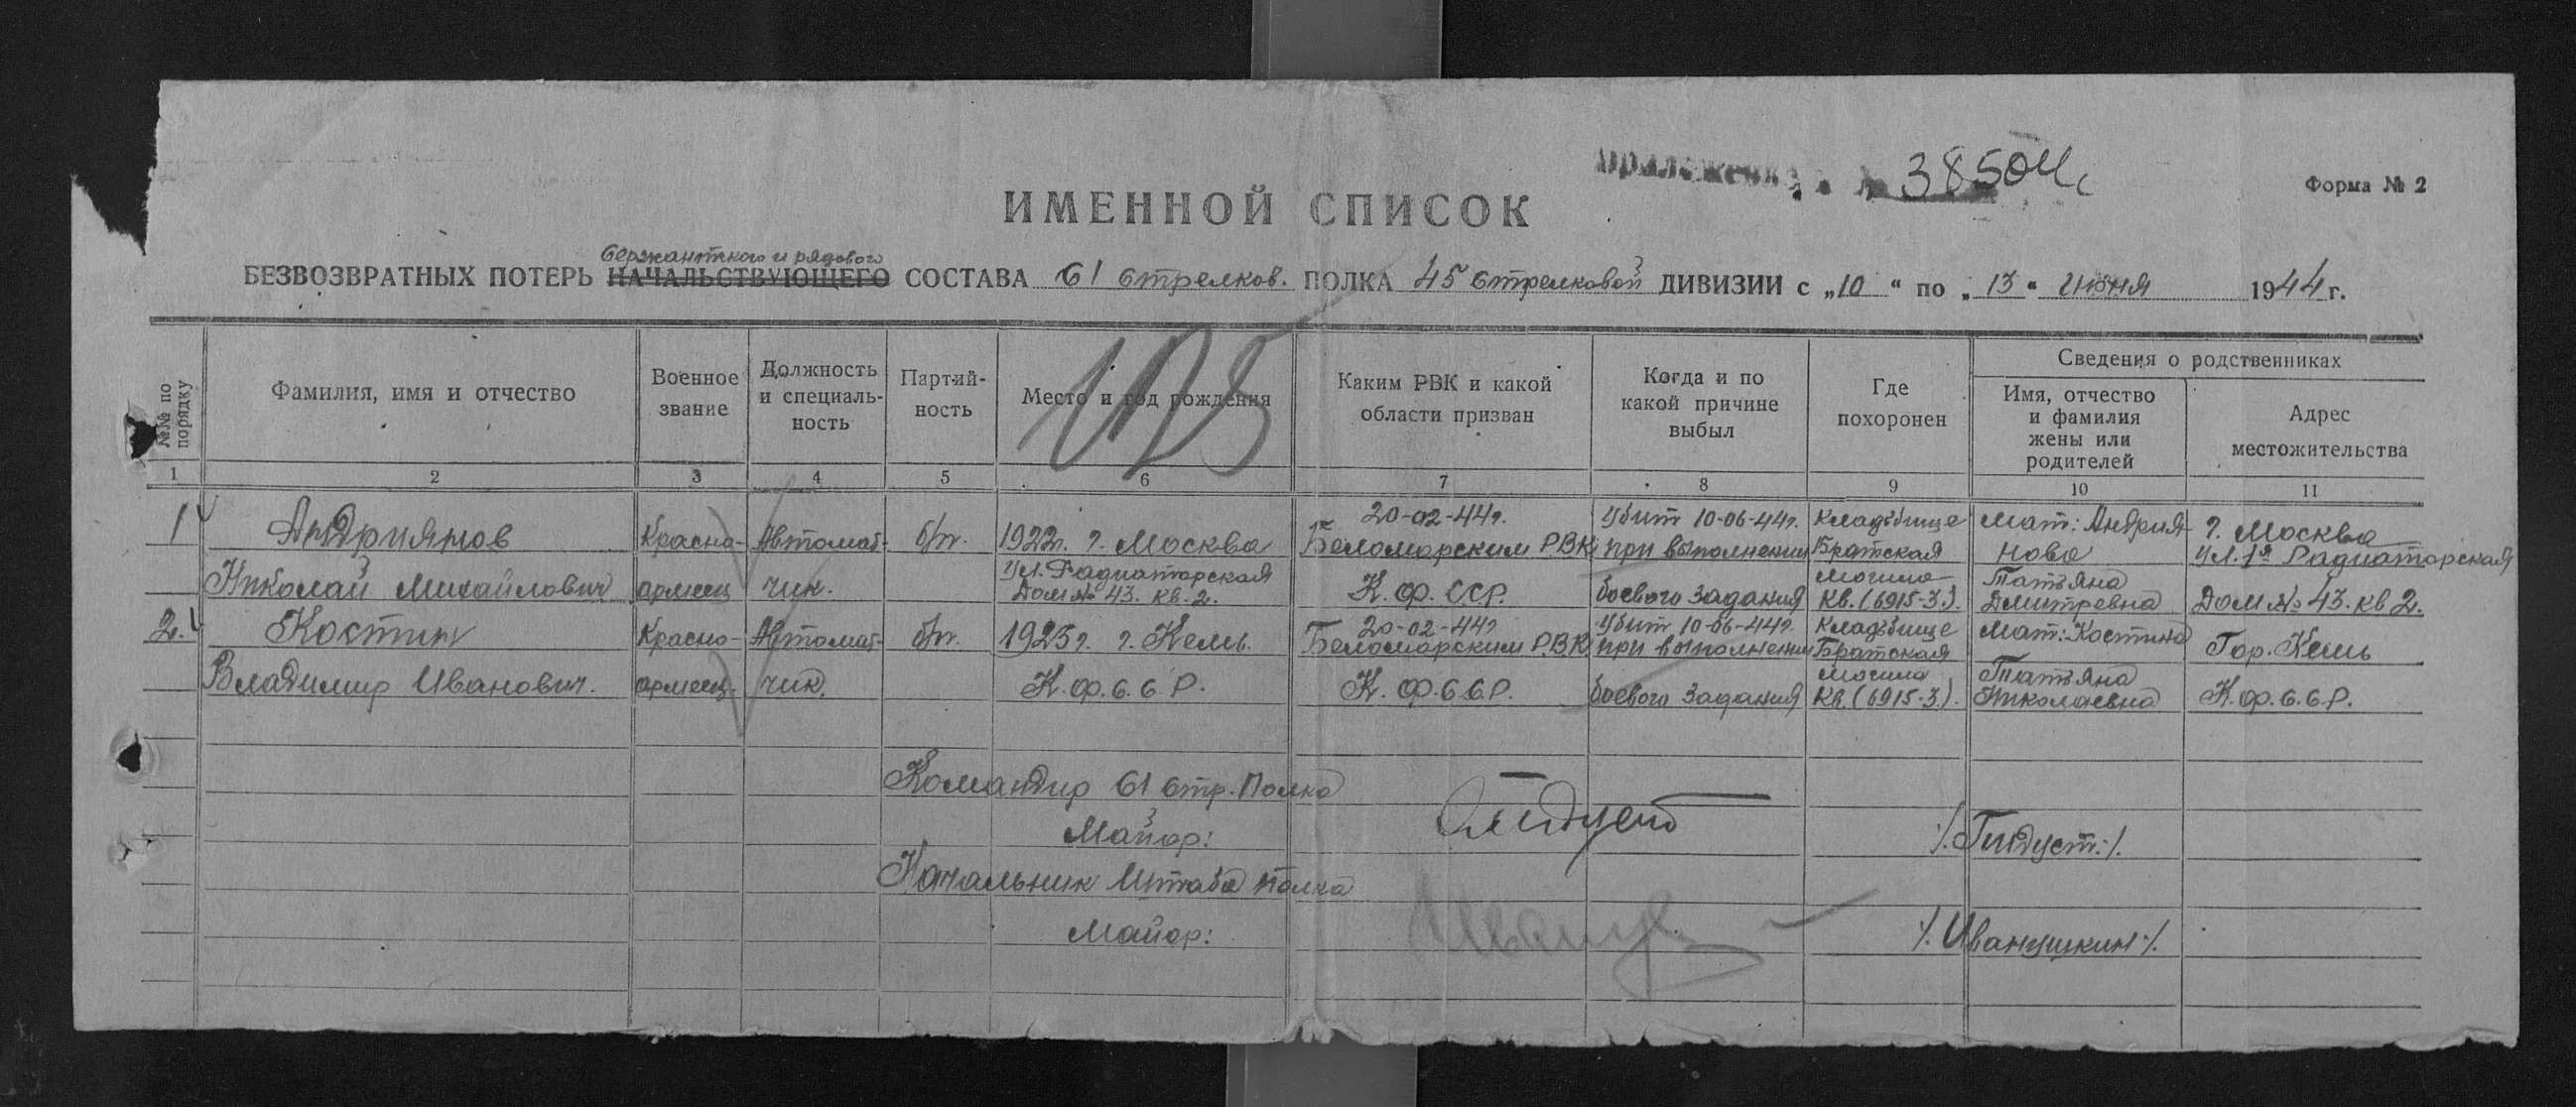 приложение 38504с
Форма № 2
ИМЕННОЙ СПИСОК
сержантского и рядового
БЕЗВОЗВРАТНЫХ ПОТЕРЬ НАЧАЛЬСТВУЮЩЕГО СОСТАВА 61 стрелков. ПОЛКА 45 стрелковой ДИВИЗИИ с „10“ по „13“ июня 1944 г.
№№ по порядку
Фамилия, имя и отчество
Военное звание
Должность и специаль-
ность
Партий-
ность
Место и год рождения
Каким РВК и какой
области призван
Когда и по
какой причине
выбыл
Где
похоронен
Сведения о родственниках
Имя, отчество
и фамилия
жены или
родителей
Адрес
местожительства
1 2 3 4 5 6 7 8 9 10 11
1
Андриянов
Николай Михайлович
Красно-
армеец
Автомат-
чик.
б/п.
1922г. г. Москва
Ул. Радиаторская
Дом № 43. кв. 2.
20-02-44г.
Беломорским РВК
К. Ф. ССР.
Убит 10-06-44г.
при выполнении
боевого задания
Кладбище
Братская
могила
Кв. (6915-3).
Мат: Андрия-
нова
Татьяна
Дмитревна
г. Москва
Ул. 1я Радиаторская
Дом № 43. кв 2.
2.
Костин
Владимир Иванович.
Красно-
армеец.
Автомат-
чик.
б/п.
1925г. г. Кемь.
К. Ф. С. С. Р.
20-02-44г
Беломорским РВК
К. Ф. С С. Р.
Убит 10-06-44г.
при выполнении
боевого задания
Кладбище
Братская
могила
Кв. (6915-3).
Мат: Костина
Татьяна
Николаевна
Гор. Кемь
К. Ф. С. С. Р.
Командир 61 стр. Полка
Майор:
/. Гиндуст: /.
Начальник Штаба полка
Майор:
/. Иванушкин: /.